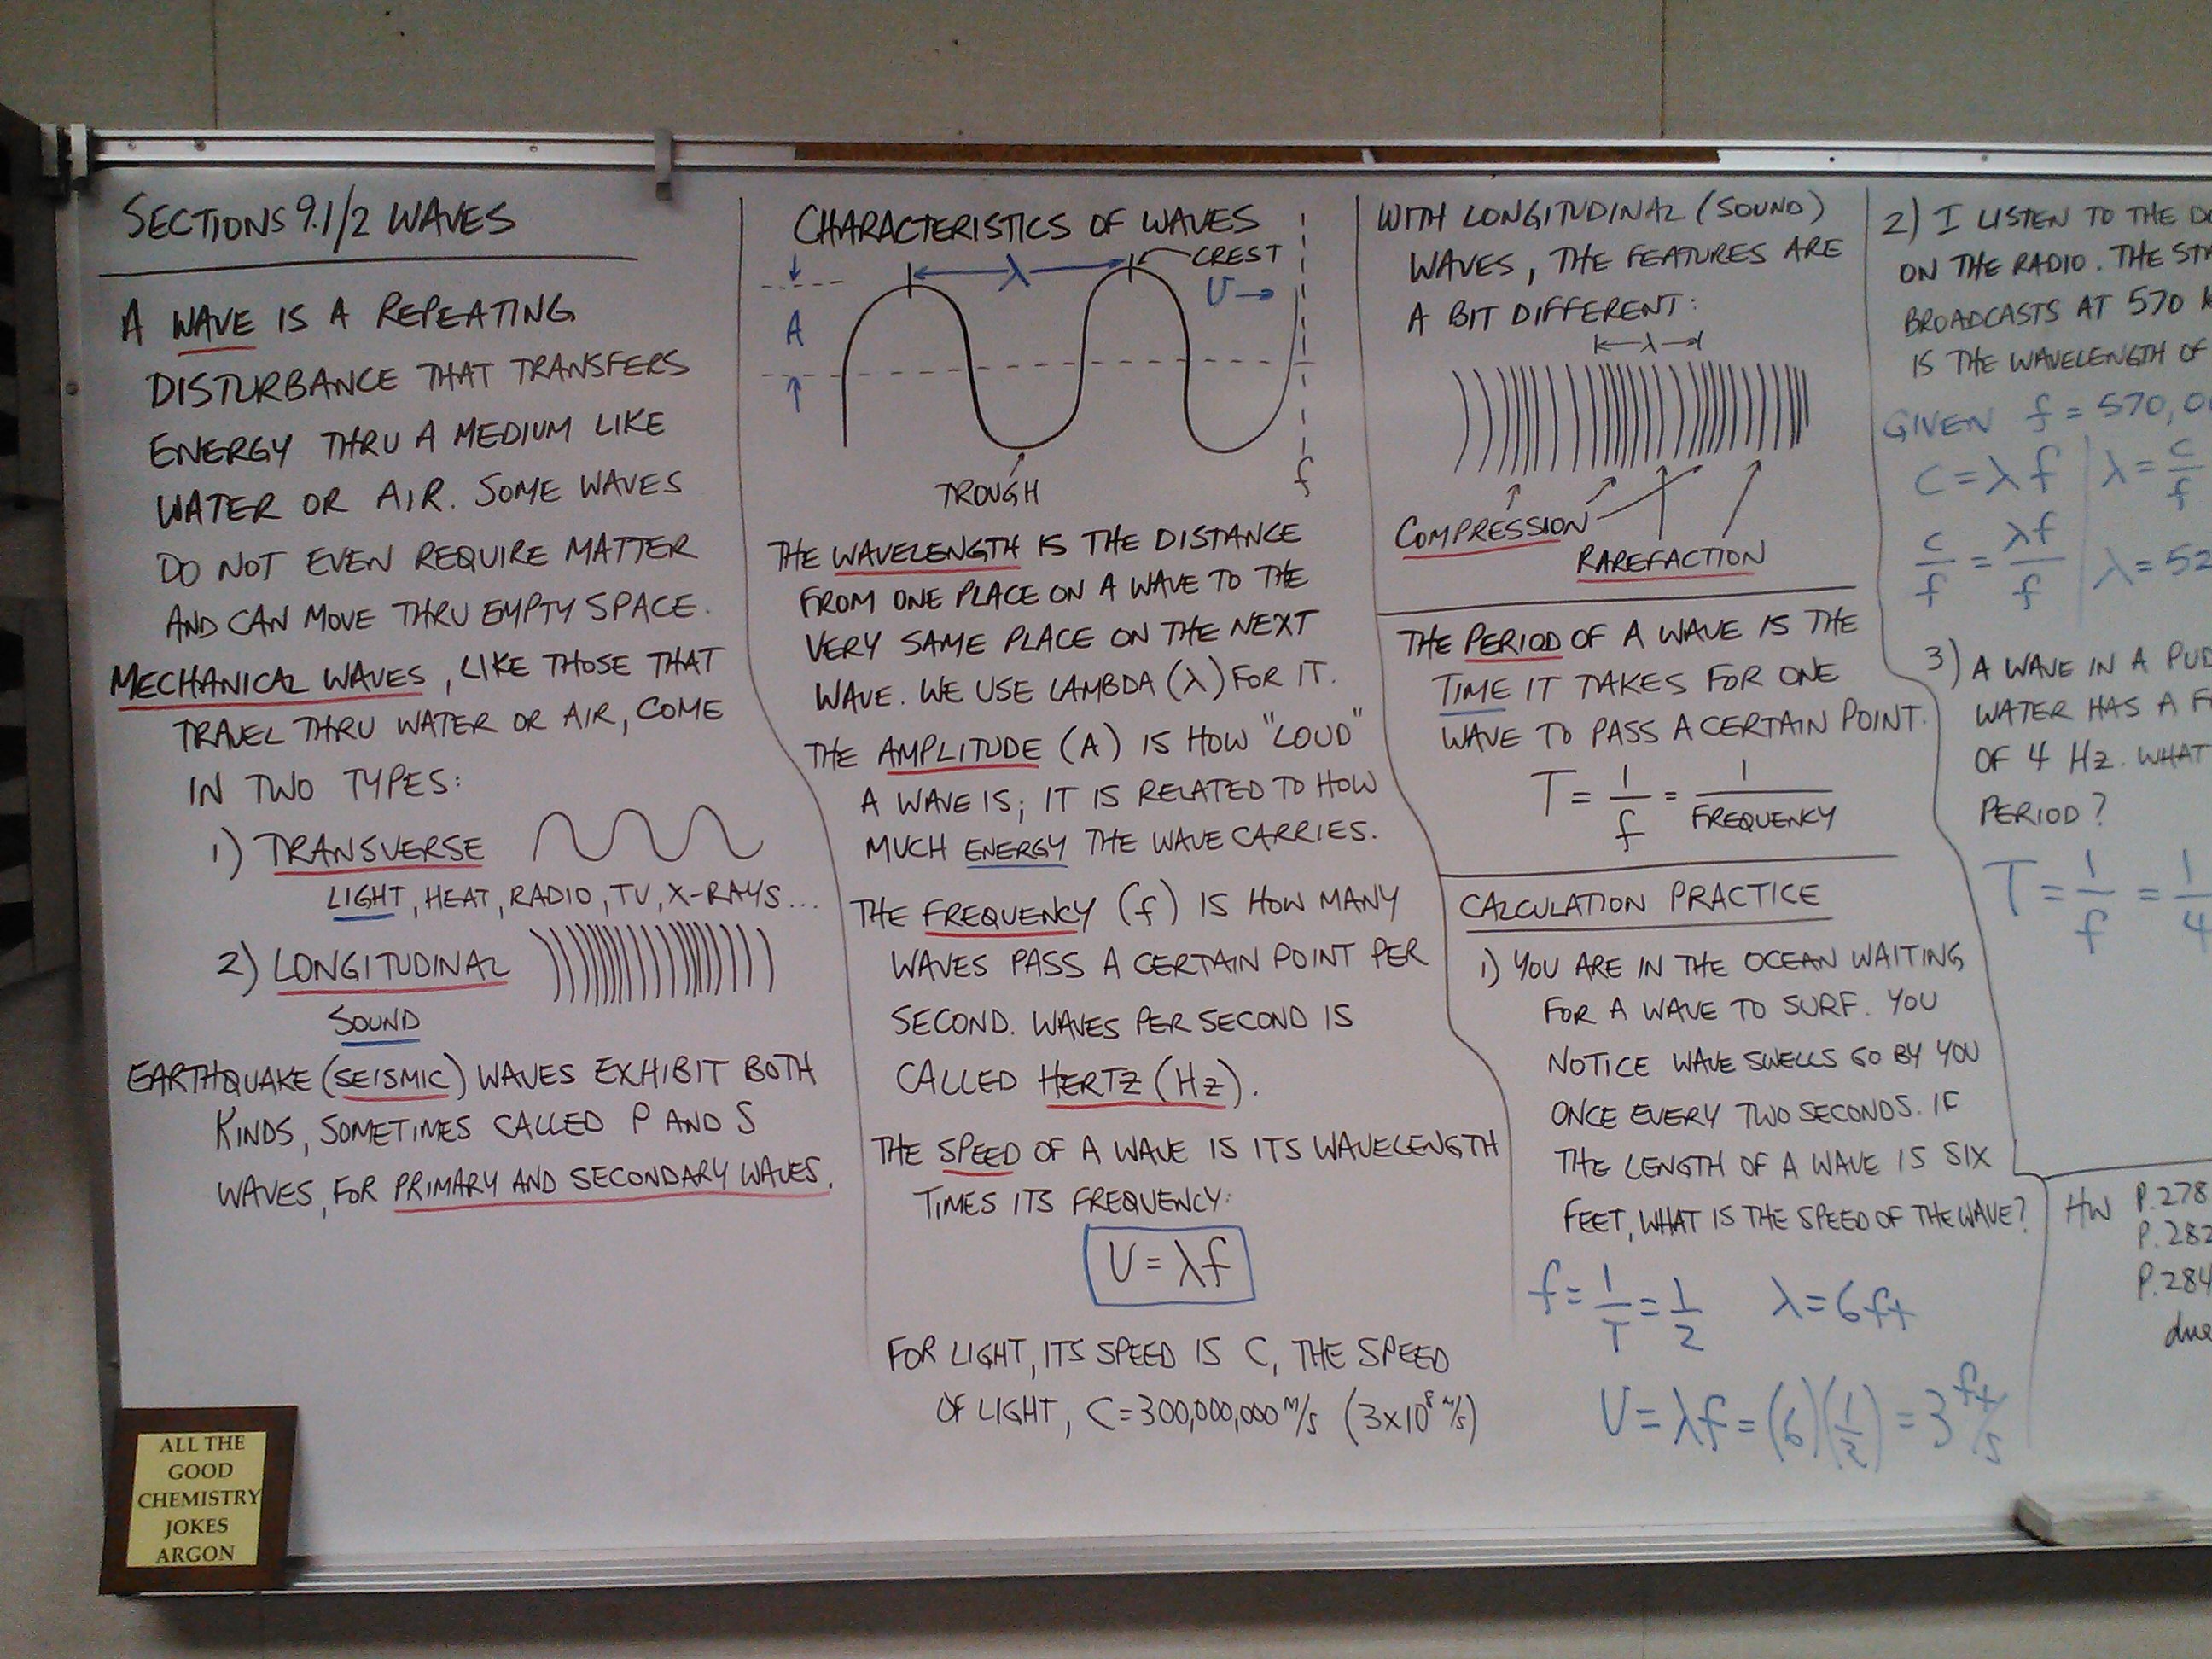 SECTIONS 9.1/2 WAVES
A WAVE IS A REPEATING
DISTURBANCE THAT TRANSFERS
ENERGY THRU A MEDIUM LIKE
WATER OR AIR. SOME WAVES
DO NOT EVEN REQUIRE MATTER
AND CAN MOVE THRU EMPTY SPACE.
MECHANICAL WAVES, LIKE THOSE THAT
TRAVEL THRU WATER OR AIR, COME
IN TWO TYPES:
1) TRANSVERSE
LIGHT, HEAT, RADIO, TV, X-RAYS...
2) LONGITUDINAL
SOUND
EARTHQUAKE (SEISMIC) WAVES EXHIBIT BOTH
KINDS, SOMETIMES CALLED P AND S
WAVES, FOR PRIMARY AND SECONDARY WAVES.
ALL THE
GOOD
CHEMISTRY
JOKES
ARGON
CHARACTERISTICS OF WAVES
λ
CREST
υ
A
TROUGH
f
THE WAVELENGTH IS THE DISTANCE
FROM ONE PLACE ON A WAVE TO THE
VERY SAME PLACE ON THE NEXT
WAVE. WE USE LAMBDA (λ) FOR IT.
THE AMPLITUDE (A) IS HOW "LOUD"
A WAVE IS; IT IS RELATED TO HOW
MUCH ENERGY THE WAVE CARRIES.
THE FREQUENCY (f) IS HOW MANY
WAVES PASS A CERTAIN POINT PER
SECOND. WAVES PER SECOND IS
CALLED HERTZ (Hz).
THE SPEED OF A WAVE IS ITS WAVELENGTH
TIMES ITS FREQUENCY:
υ = λf
FOR LIGHT, ITS SPEED IS C, THE SPEED
OF LIGHT, C = 300,000,000 m/s (3x10⁸ m/s)
WITH LONGITUDINAL (SOUND)
WAVES, THE FEATURES ARE
A BIT DIFFERENT:
λ
COMPRESSION
RAREFACTION
THE PERIOD OF A WAVE IS THE
TIME IT TAKES FOR ONE
WAVE TO PASS A CERTAIN POINT.
T = 1/f = 1/FREQUENCY
CALCULATION PRACTICE
1) YOU ARE IN THE OCEAN WAITING
FOR A WAVE TO SURF. YOU
NOTICE WAVE SWELLS GO BY YOU
ONCE EVERY TWO SECONDS. IF
THE LENGTH OF A WAVE IS SIX
FEET, WHAT IS THE SPEED OF THE WAVE?
f = 1/T = 1/2 λ = 6 ft
υ = λf = (6)(1/2) = 3 ft/s
2) I LISTEN TO THE
ON THE RADIO. THE
BROADCASTS AT 570
IS THE WAVELENGTH OF
GIVEN f = 570,0
C = λf λ = C/f
C/f = λf/f λ = 52
3) A WAVE IN A
WATER HAS A
OF 4 Hz. WHAT
PERIOD?
T = 1/f = 1/4
HW P.278
P.282
P.284
due